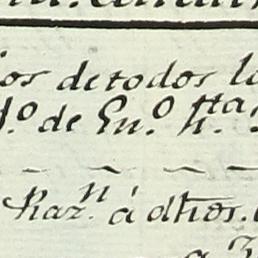 os de todos l
o. de En.o h.ta
Raz.n á dhos.
a 3